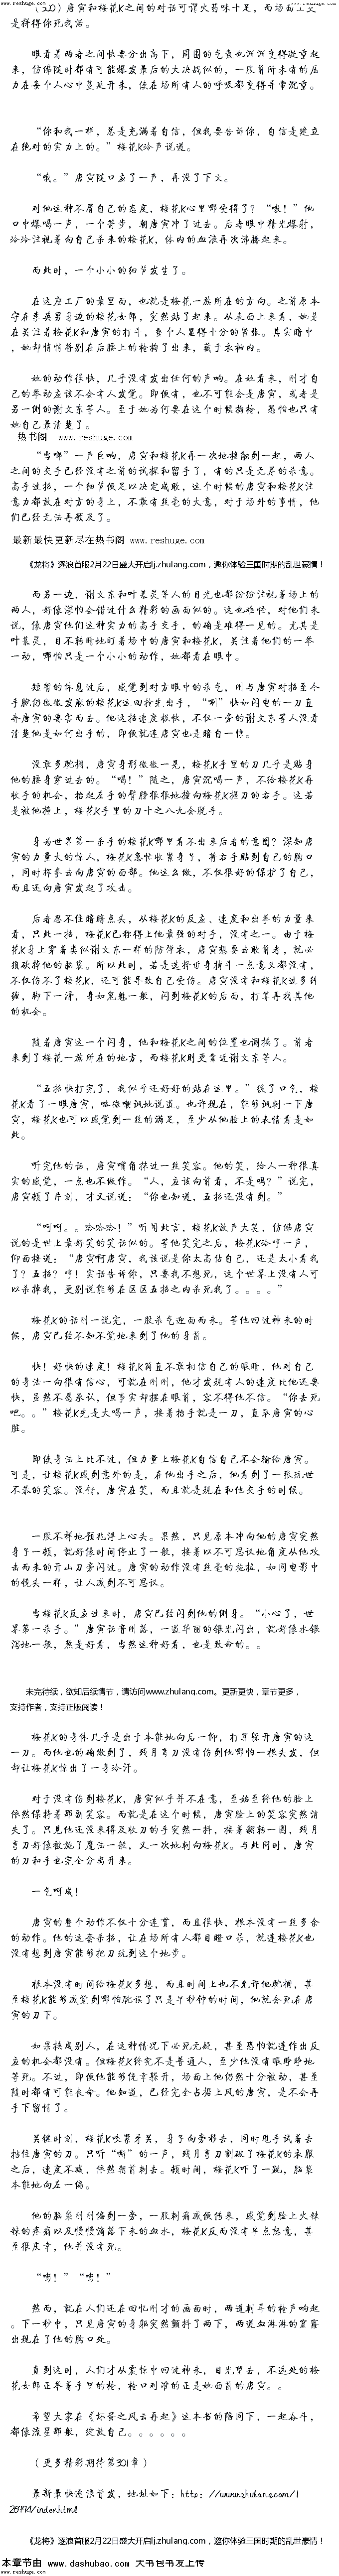 www.reshuge.com www.reshuge.com
(300) 唐寅和梅花K之间的对话可谓火药味十足，而场面上又
是拼得你死我活。
眼看着两者之间快要分出高下，周围的气氛也渐渐变得凝重起
来，仿佛随时都有可能爆发最后的大决战似的，一股前所未有的压
力在每个人心中蔓延开来，但在场所有人的呼吸都变得异常沉重。
“你和我一样，总是充满着自信，但我要告诉你，自信是建立
在绝对的实力上的。”梅花K冷声说道。
“哦。”唐寅随口应了一声，再没了下文。
对他这种不屑自己的态度，梅花K心里哪受得了？“喉！”他
口中爆喝一声，一个箭步，朝唐寅冲了过去。后者眼中精光爆射，
冷冷注视着向自己杀来的梅花K，体内的血液再次沸腾起来。
而此时，一个小小的细节发生了。
在这座工厂的最里面，也就是梅花一族所在的方向。之前原本
守在李英男身边的梅花女郎，突然站了起来。从表面上来看，她是
在关注着梅花K和唐寅的打斗，整个人显得十分的紧张。其实暗中
，她却悄悄将别在后腰上的枪掏了出来，藏于衣袖内。
她的动作很快，几乎没有发出任何的声响。在她看来，刚才自
己的举动应该不会有人发觉。即使有，也不可能会是唐寅，或者是
另一侧的谢文东等人。至于她为何要在这个时候掏枪，恐怕也只有
她自己最清楚了。
热书阁 www.reshuge.com
“当啷”一声巨响，唐寅和梅花K再一次地接触到一起，两人
之间的交手已经没有之前的试探和留手了，有的只是无尽的杀意。
高手过招，一个细节便足以决定成败，这个时候的唐寅和梅花K注
意力都放在对方的身上，不敢有丝毫的大意，对于场外的事情，他
们已经无法再顾及了。
最新最快更新尽在热书阁 www.reshuge.com
《龙将》逐浪首服2月22日盛大开启lj.zhulang.com，邀你体验三国时期的乱世豪情！
而另一边，谢文东和叶慕灵等人的目光也都纷纷注视着场上的
两人，好像深怕会错过什么精彩的画面似的。这也难怪，对他们来
说，像唐寅他们这种实力的高手交手，的确是难得一见的。尤其是
叶慕灵，目不转睛地盯着场中的唐寅和梅花K，关注着他们的一举
一动，哪怕只是一个小小的动作，她都看在眼中。
短暂的休息过后，感觉到对方眼中的杀气，刚与唐寅对招至今
手腕仍微微发麻的梅花K这回抢先出手，“唰”快如闪电的一刀直
奔唐寅的要害而去。他这招速度极快，不仅一旁的谢文东等人没看
清楚他是如何出手的，即使就连唐寅也是暗自一惊。
没敢多耽搁，唐寅身形微微一晃，梅花K手里的刀几乎是贴身
他的腰身穿过去的。“喝！”随之，唐寅沉喝一声，不给梅花K再
收手的机会，抬起左手的臂膀狠狠地撞向梅花K握刀的右手。这若
是被他撞上，梅花K手里的刀十之八九会脱手。
身为世界第一杀手的梅花K哪里看不出来后者的意图？深知唐
寅的力量大的惊人，梅花K急忙收紧身子，将右手贴到自己的胸口
，同时挥拳击向唐寅的面部。他这么做，不仅很好的保护了自己，
而且还向唐寅发起了攻击。
后者忍不住暗暗点头，从梅花K的反应、速度和出手的力量来
看，只此一招，梅花K已称得上他最强的对手，没有之一。由于梅
花K身上穿着类似谢文东一样的防弹衣，唐寅想要击败前者，就必
须破掉他的脑袋。所以此时，若是选择近身搏斗一点意义都没有，
不仅伤不了梅花K，还可能导致自己受伤。唐寅没有和梅花K过多纠
缠，脚下一滑，身如鬼魅一般，闪到梅花K的后面，打算再找其他
的机会。
随着唐寅这一个闪身，他和梅花K之间的位置也调换了。前者
来到了梅花一族所在的地方，而梅花K则更靠近谢文东等人。
“五招快打完了，我似乎还好好的站在这里。”缓了口气，梅
花K看了一眼唐寅，略微嘲讽地说道。也许现在，能够讽刺一下唐
寅，梅花K也可以感觉到一丝的满足，至少从他脸上的表情看是如
此。
听完他的话，唐寅嘴角抹过一丝笑容。他的笑，给人一种很真
实的感觉，一点也不做作。“人，应该向前看，不是吗？”说完，
唐寅顿了片刻，才又说道：“你也知道，五招还没有到。”
“呵呵。。哈哈哈！”听闻此言，梅花K放声大笑，仿佛唐寅
说的是世上最好笑的笑话似的。等他笑完之后，梅花K冷哼一声，
仰面接道：“唐寅啊唐寅，我该说是你太高估自己，还是太小看我
了？五招？哼！实话告诉你，只要我不想死，这个世界上没有人可
以杀掉我，更别说能够在区区五招之内杀死我了。。。。”
梅花K的话刚一说完，一股杀气迎面而来。等他回过神来的时
候，唐寅已经不知不觉地来到了他的身前。
快！好快的速度！梅花K简直不敢相信自己的眼睛，他对自己
的身法一向很有信心，可就在刚刚，他才发现有人的速度比他还要
快，虽然不愿承认，但事实却摆在眼前，容不得他不信。“你去死
吧。。”梅花K先是大喝一声，接着抬手就是一刀，直取唐寅的心
脏。
即使身法上比不过，但力量上梅花K自信自己不会输给唐寅。
可是，让梅花K感到意外的是，在他出手之后，他看到了一张玩世
不恭的笑容。没错，唐寅在笑，而且就是现在和他交手的时候。
一股不祥地预兆浮上心头。果然，只见原本冲向他的唐寅突然
身子一顿，就好像时间停止了一般，接着以不可思议地角度从他攻
击而来的开山刀旁闪过。唐寅的动作没有丝毫的拖拉，如同电影中
的镜头一样，让人感到不可思议。
当梅花K反应过来时，唐寅已经闪到他的侧身。“小心了，世
界第一杀手。”唐寅话音刚落，一道华丽的银光闪出，就好像水银
泻地一般，煞是好看，当然这种好看，也是致命的。。
未完待续，欲知后续情节，请访问www.zhulang.com。更新更快，章节更多，
支持作者，支持正版阅读！
梅花K的身体几乎是出于本能地向后一仰，打算躲开唐寅的这
一刀。而他也的确做到了，残月弯刀没有伤到他哪怕一根头发，但
却让梅花K惊出了一身冷汗。
对于没伤到梅花K，唐寅似乎并不在意，至始至终他的脸上
依然保持着那副笑容。而就是在这个时候，唐寅脸上的笑容突然消
失了。只见他还没来得及收刀的手突然一抖，接着翻转一圈，残月
弯刀好像被施了魔法一般，又一次地刺向梅花K。与此同时，唐寅
的刀和手也完全分离开来。
一气呵成！
唐寅的整个动作不仅十分连贯，而且很快，根本没有一丝多余
的动作。他的这套杀招，让在场所有人都目瞪口呆，就连梅花K也
没有想到唐寅能够把刀玩到这个地步。
根本没有时间给梅花K多想，而且时间上也不允许他耽搁，甚
至梅花K能够感觉到哪怕耽误了只是半秒钟的时间，他就会死在唐
寅的刀下。
如果换成别人，在这种情况下必死无疑，甚至恐怕就连作出反
应的机会都没有。但梅花K终究不是普通人，至少他没有眼睁睁地
等死。不过，即使他能够侥幸躲开，场面上他仍然十分被动，甚至
随时都有可能丧命。他知道，已经完全占据上风的唐寅，是不会再
手下留情了。
关键时刻，梅花K咬紧牙关，身子向旁移去，同时甩手试着去
挡住唐寅的刀。只听“嘶”的一声，残月弯刀割破了梅花K的衣服
之后，速度不减，依然朝前刺去。顿时间，梅花K吓了一跳，脑袋
本能地向左一偏。
他的脑袋刚刚偏到一旁，一股刺痛感便传来，感觉到脸上火辣
辣的疼痛以及慢慢滴落下来的血水，梅花K反而没有半点怒意，甚
至很庆幸，他并没有死。
“嘭！”“嘭！”
然而，就在人们还在回忆刚才的画面时，两道刺耳的枪声响起
。下一秒中，只见唐寅的身躯突然颤抖了两下，两道血淋淋的窟窿
出现在了他的胸口处。
直到这时，人们才从震惊中回过神来，目光望去，不远处的梅
花女郎正举着手里的枪，枪口对准的正是她面前的唐寅。。
希望大家在《坏蛋之风云再起》这本书的陪同下，一起奋斗，
都像流星那般，绽放自己。。。。。。
（更多精彩期待第301章）
最新最快逐浪首发，地址如下：http：//www.zhulang.com/1
26994/index.html
《龙将》逐浪首服2月22日盛大开启lj.zhulang.com，邀你体验三国时期的乱世豪情！
本章节由 www.dashubao.com 大书包书友上传
www.reshuge.com www.reshuge.com